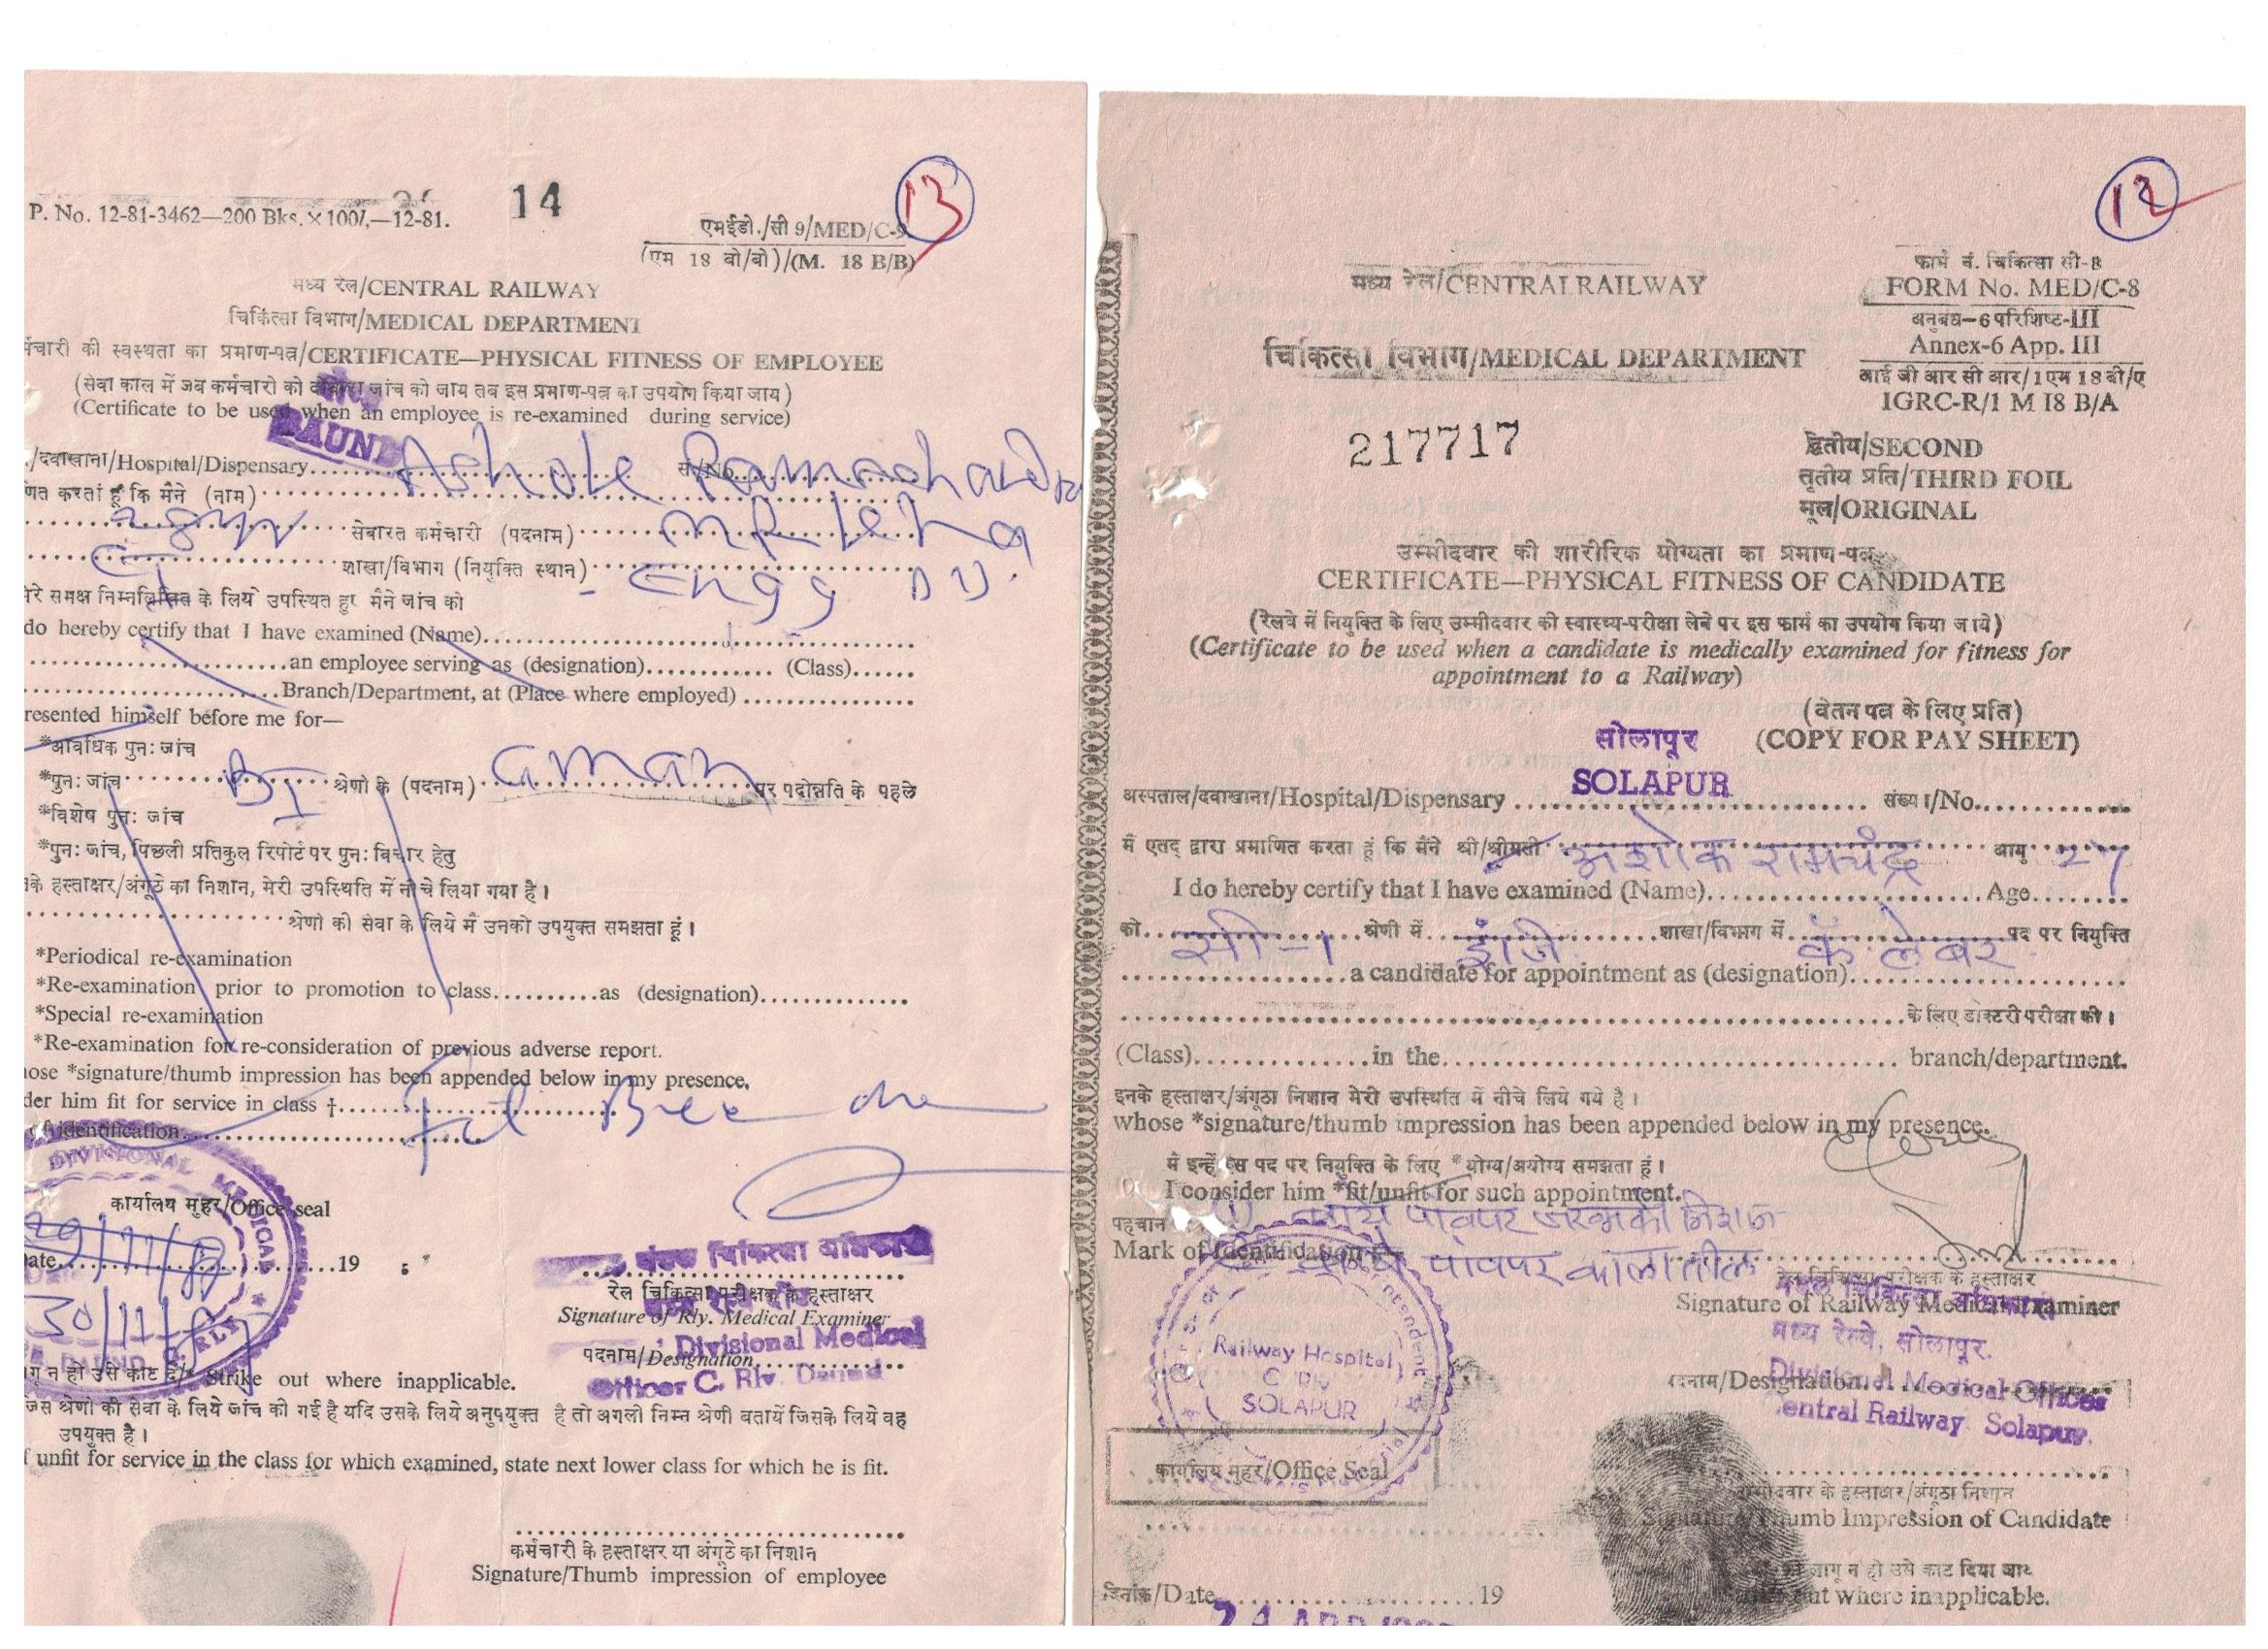 P. No. 12-81-3462—200 Bks. × 100/.—12-81.
14
13
एमईडो./सी 9/MED/C-9
(एम 18 बो/बो)/(M. 18 B/B)
मध्य रेल/CENTRAL RAILWAY
चिकित्सा विभाग/MEDICAL DEPARTMENT
र्मचारी की स्वस्थता का प्रमाण-पत्र/CERTIFICATE—PHYSICAL FITNESS OF EMPLOYEE
(सेवा काल में जब कर्मचारो को दोबारा जांच को जाय तब इस प्रमाण-पत्र का उपयोग किया जाय)
(Certificate to be used when an employee is re-examined during service)
DAUND
./दवाखाना/Hospital/Dispensary सं/No.
Ashok Ramachandra
णित करतां हूं कि मैंने (नाम)
28yrs सेवारत कर्मचारी (पदनाम)
शाखा/विभाग (नियुक्ति स्थान) Engg
मेरे समक्ष निम्नलिखित के लिये उपस्थित हुए मैंने जांच को
do hereby certify that I have examined (Name)
an employee serving as (designation) (Class)
Branch/Department, at (Place where employed)
resented himself before me for—
*आवधिक पुनः जांच
*पुनः जांच BI श्रेणो के (पदनाम) Gman पर पदोन्नति के पहले
*विशेष पुनः जांच
*पुनः जांच, पिछली प्रतिकुल रिपोर्ट पर पुनः विचार हेतु
नके हस्ताक्षर/अंगूठे का निशान, मेरी उपस्थिति में नीचे लिया गया है।
श्रेणो की सेवा के लिये मैं उनको उपयुक्त समझता हूं।
*Periodical re-examination
*Re-examination prior to promotion to class as (designation)
*Special re-examination
*Re-examination for re-consideration of previous adverse report.
hose *signature/thumb impression has been appended below in my presence,
der him fit for service in class †
Fit Bee one
of identification
DIVISIONAL MEDICAL
कार्यालय मुहर/Office seal
29/11/8
ate 19
30/11/8
DAUND C. RLY
मंडल चिकित्सा अधिकारी
रेल चिकित्सा परीक्षक के हस्ताक्षर
मध्य रेल दौंड
Signature of Rly. Medical Examiner
Divisional Medical
पदनाम/Designation
Officer C. Rly. Daund
गू न हो उसे काट दें/* Strike out where inapplicable.
जिस श्रेणो की सेवा के लिये जांच की गई है यदि उसके लिये अनुपयुक्त है तो अगली निम्न श्रेणी बतायें जिसके लिये वह
उपयुक्त है।
f unfit for service in the class for which examined, state next lower class for which he is fit.
कर्मचारी के हस्ताक्षर या अंगूठे का निशान
Signature/Thumb impression of employee
12
मध्य रेल/CENTRAL RAILWAY
फार्म नं. चिकित्सा सी-8
FORM No. MED/C-8
अनुबंध—6 परिशिष्ट-III
Annex-6 App. III
आई जी आर सी आर/1 एम 18 बी/ए
IGRC-R/1 M 18 B/A
चिकित्सा विभाग/MEDICAL DEPARTMENT
217717
द्वितीय/SECOND
तृतीय प्रति/THIRD FOIL
मूल/ORIGINAL
उम्मीदवार की शारीरिक योग्यता का प्रमाण-पत्र
CERTIFICATE—PHYSICAL FITNESS OF CANDIDATE
(रेलवे में नियुक्ति के लिए उम्मीदवार की स्वास्थ्य-परीक्षा लेने पर इस फार्म का उपयोग किया जाये)
(Certificate to be used when a candidate is medically examined for fitness for
appointment to a Railway)
(वेतन पत्र के लिए प्रति)
(COPY FOR PAY SHEET)
सोलापूर
SOLAPUR
अस्पताल/दवाखाना/Hospital/Dispensary संख्या/No.
मैं एतद् द्वारा प्रमाणित करता हूं कि मैंने श्री/श्रीमती अशोक रामचंद्र आयु 27
I do hereby certify that I have examined (Name) Age
को सी-1 श्रेणी में इंजि शाखा/विभाग में कॅ लेबर पद पर नियुक्ति
a candidate for appointment as (designation)
के लिए डाक्टरी परीक्षा की।
(Class) in the branch/department.
इनके हस्ताक्षर/अंगूठा निशान मेरी उपस्थिति में नीचे लिये गये है।
whose *signature/thumb impression has been appended below in my presence.
मैं इन्हें इस पद पर नियुक्ति के लिए *योग्य/अयोग्य समझता हूं।
I consider him *fit/unfit for such appointment.
पहचान (1) बाये पांवपर जख्मका निशान
Mark of Identification पांवपर काला तील
रेल चिकित्सा परीक्षक के हस्ताक्षर
मंडल चिकित्सा अधिकारी
Signature of Railway Medical Examiner
मध्य रेल्वे, सोलापूर.
पदनाम/Designation
Divisional Medical Officer
Central Railway Solapur.
Railway Hospital
C Rly
SOLAPUR
कार्यालय मुहर/Office Seal
उम्मीदवार के हस्ताक्षर/अंगूठा निशान
Signature/Thumb Impression of Candidate
लागू न हो उसे काट दिया जाए
Strike out where inapplicable.
दिनांक/Date 19
24 APR